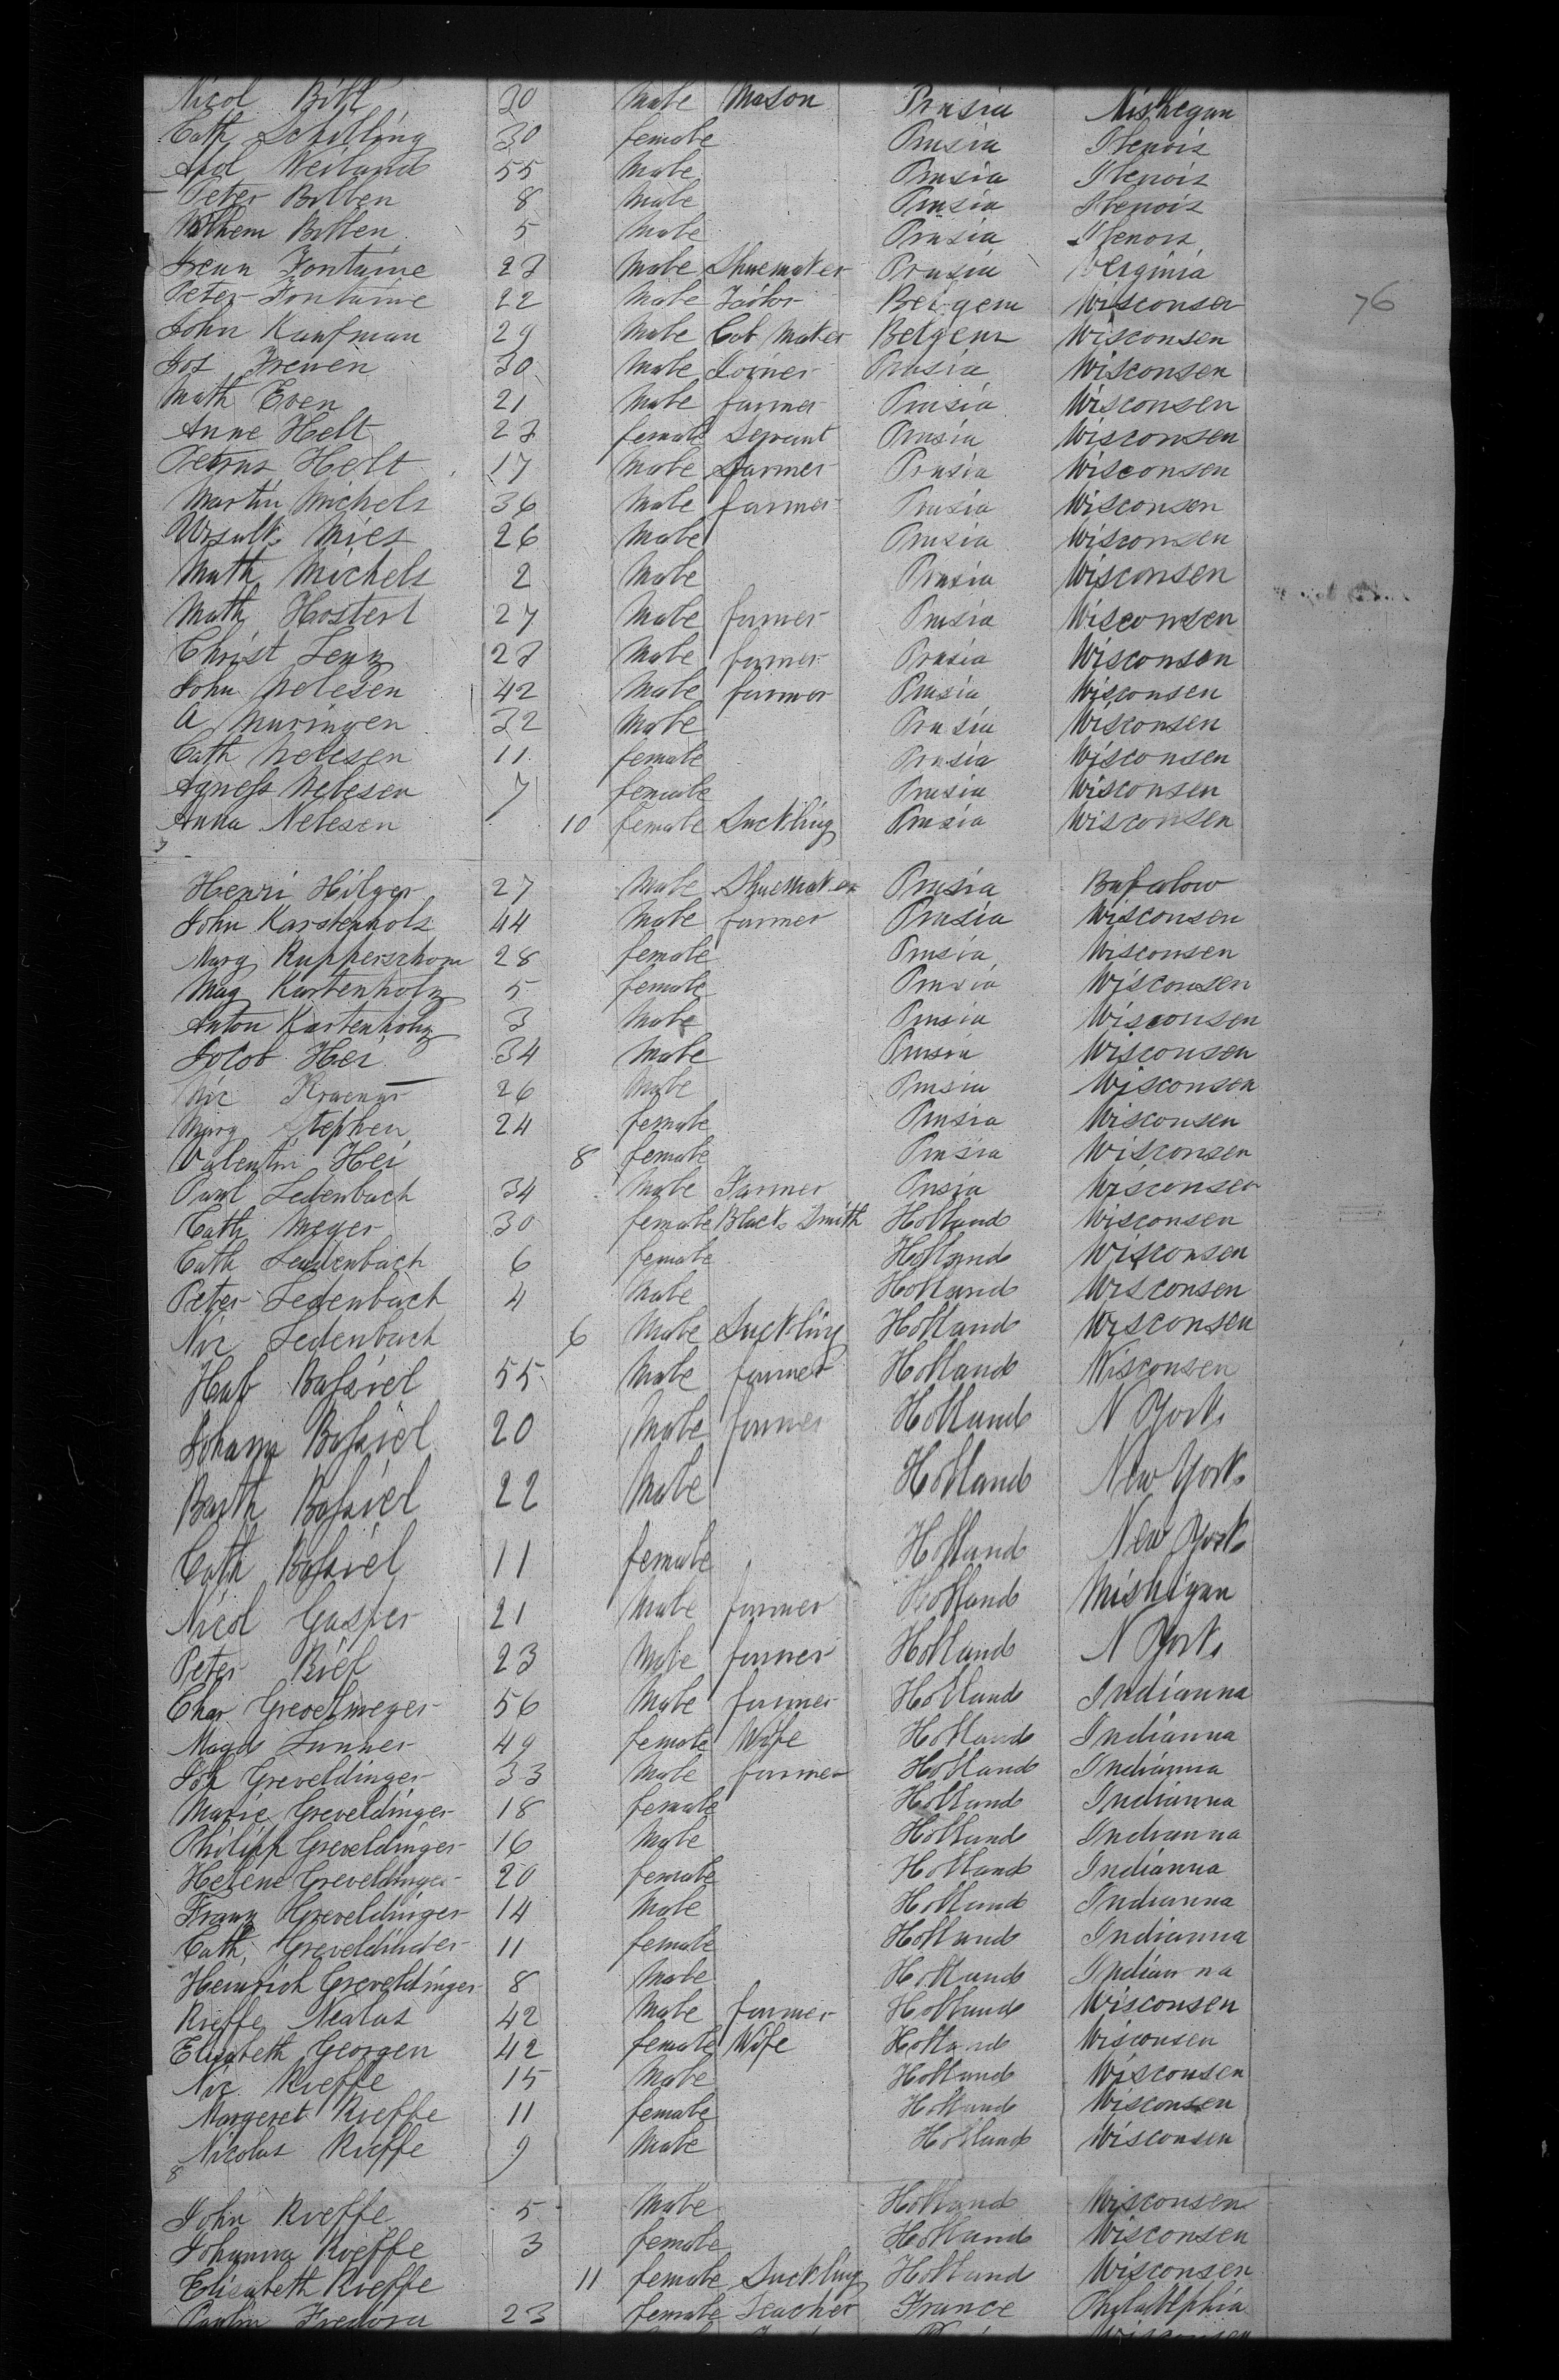 Nicol Bill 20 Male Mason Prusia Mishegan
Cath Schilling 30 female Prusia Ilenois
Apol Weiland 55 Male Prusia Ilenois
Peter Billen 8 Male Prusia Ilenois
Wilhem Billen 5 Male Prusia Ilenois
Fontaine 27 Male Shuemaker Prusia Verginia
Peter Fontaine 22 Male Tailor Belgem Wisconsen 76
John Kaufman 29 Male Cab Maker Belgem Wisconsen
Jos Irenen 30 Male Joiner Prusia Wisconsen
Math Even 21 Male farmer Prusia Wisconsen
Anne Helt 27 female Servant Prusia Wisconsen
Petrus Helt 17 Male farmer Prusia Wisconsen
Martin Michels 36 Male farmer Prusia Wisconsen
Ursula Mies 26 Male Prusia Wisconsen
Math Michels 2 Male Prusia Wisconsen
Math Hostert 27 Male farmer Prusia Wisconsen
Christ Lenz 27 Male farmer Prusia Wisconsen
John Nelesen 42 Male farmer Prusia Wisconsen
A Muringen 32 Male Prusia Wisconsen
Cath Nelesen 11 female Prusia Wisconsen
Agness Nelesen 7 female Prusia Wisconsen
Anna Nelesen 10 female Suckling Prusia Wisconsen
Henri Hilger 27 Male Shuemaker Prusia Bufalow
John Karstenholz 44 Male farmer Prusia Wisconsen
Marg Ruppershorn 28 female Prusia Wisconsen
Mag Kartenholz 5 female Prusia Wisconsen
Anton Kartenholz 3 Male Prusia Wisconsen
Jocob Hei 34 Male Prusia Wisconsen
Nic Kraemer 26 Male Prusia Wisconsen
Marg Stephen 24 female Prusia Wisconsen
Valentin Hei 8 female Prusia Wisconsen
Paul Ledenbach 34 Male Farmer Prusia Wisconsen
Cath Meyer 30 female Black Smith Holland Wisconsen
Cath Ledenbach 6 female Holland Wisconsen
Peter Ledenbach 4 Male Holland Wisconsen
Nic Ledenbach 6 Male Suckling Holland Wisconsen
Hub Bassiel 55 Male farmer Holland Wisconsen
Johann Bassiel 20 Male farmer Holland N York
Barth Bassiel 22 Male Holland New York
Cath Bassiel 11 female Holland New York
Nicol Gasper 21 Male farmer Holland Mishigan
Peter Rief 23 Male farmer Holland N York
Char Grevelmeyer 56 Male farmer Holland Indianna
Magd Lunner 49 female Wife Holland Indianna
Joh Greveldinger 33 Male farmer Holland Indianna
Marie Greveldinger 18 female Holland Indianna
Philipp Greveldinger 16 Male Holland Indianna
Helene Greveldinger 20 female Holland Indianna
Franz Greveldinger 14 Male Holland Indianna
Cath Greveldinder 11 female Holland Indianna
Heinrich Greveldinger 8 Male Holland Indianna
Rieffe Nealas 42 Male farmer Holland Wisconsen
Elisabeth Georgen 42 female Wife Holland Wisconsen
Nic Rieffe 15 Male Holland Wisconsen
Margeret Rieffe 11 female Holland Wisconsen
Nicolas Rieffe 9 Male Holland Wisconsen
8
John Rieffe 5 Male Holland Wisconsen
Johanna Rieffe 3 female Holland Wisconsen
Elisabeth Rieffe 11 female Suckling Holland Wisconsen
Fredora 23 female Teacher France Phyladelphia
Wisconsen